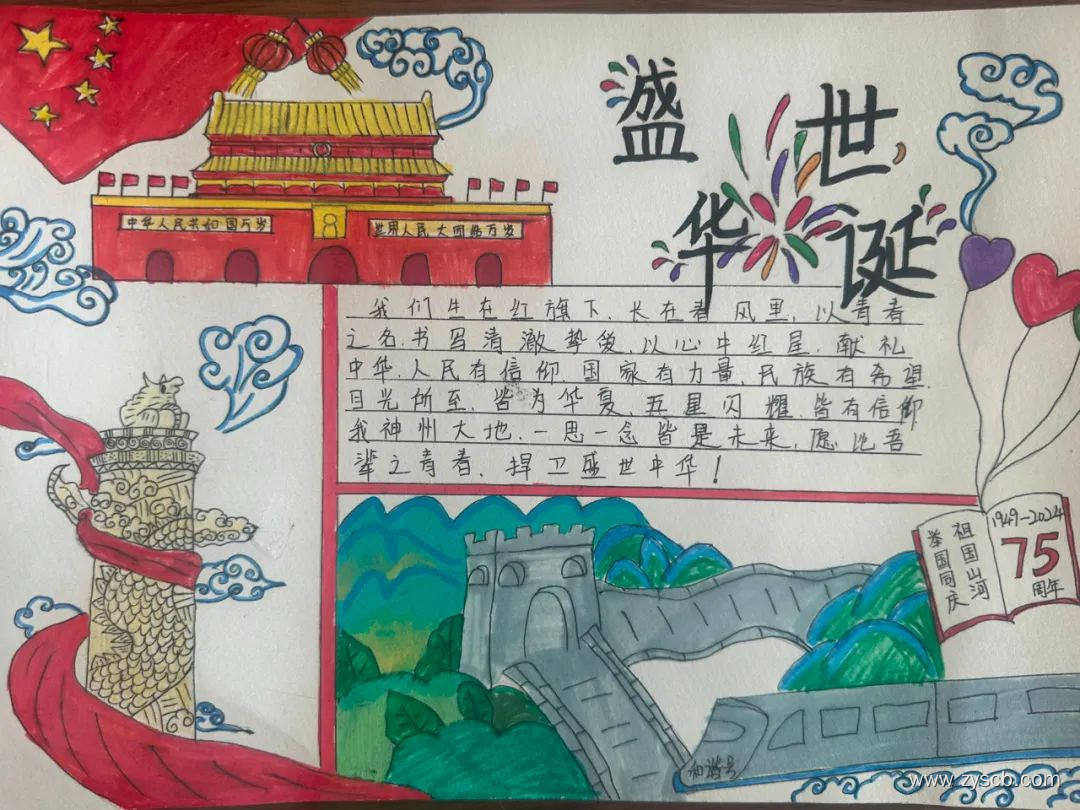 盛世
华诞
中华人民共和国万岁
世界人民大团结万岁
我们生在红旗下,长在春风里,以青春
之名,书写清澈挚爱,以心中红星,献礼
中华,人民有信仰,国家有力量,民族有希望
目光所至,皆为华夏,五星闪耀,皆有信仰
我神州大地,一思一念皆是未来,愿此吾
辈之青春,捍卫盛世中华!
祖国山河
举国同庆
1949-2024
75
周年
和谐号
www.zyscb.com